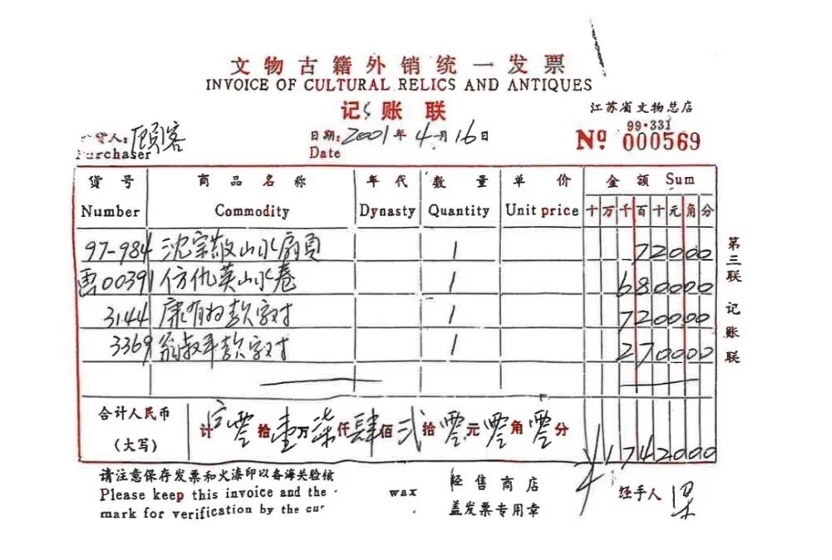 文物古籍外销统一发票
INVOICE OF CULTURAL RELICS AND ANTIQUES
记账联
江苏省文物总店
货人：顾客 日期：2001年4月16日 99·331
Purchaser Date Nº 000569
货号 商品名称 年代 数量 单价 金额 Sum
Number Commodity Dynasty Quantity Unit price 十万千百十元角分
97-984 沈宗敬山水扇页 1 72000
00391 仿仇英山水卷 1 680000
3144 康有为款字对 1 720000
3369 翁叔平款字对 1 270000
合计人民币
(大写) 计零拾壹万柒仟肆佰贰拾零元零角零分 ¥1742000
请注意保存发票和火漆印以备海关验核
Please keep this invoice and the wax
mark for verification by the cu
经售商店
盖发票专用章
经手人 梁
第三联 记账联